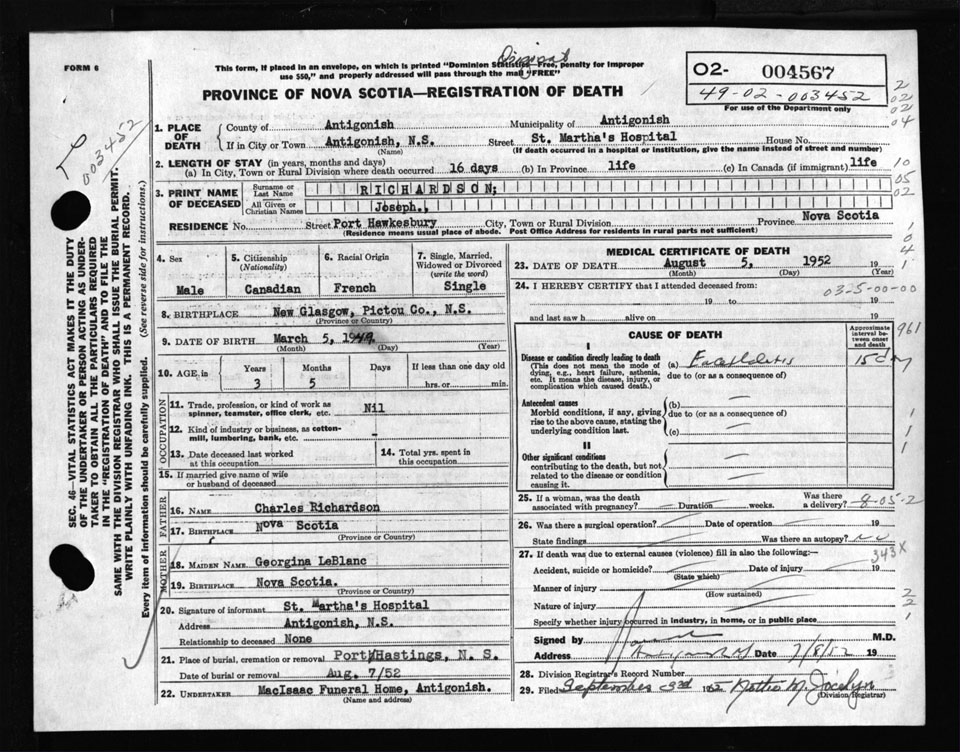 FORM 6
Original
This form, if placed in an envelope, on which is printed "Dominion Statistics—Free, penalty for improper
use $50," and properly addressed will pass through the mail "FREE"
PROVINCE OF NOVA SCOTIA—REGISTRATION OF DEATH
O2- 004567
49-02-003452
For use of the Department only
003452
SEC. 46 VITAL STATISTICS ACT MAKES IT THE DUTY
OF THE UNDERTAKER OR PERSON ACTING AS UNDER-
TAKER TO OBTAIN ALL THE PARTICULARS REQUIRED
IN THE "REGISTRATION OF DEATH" AND TO FILE THE
SAME WITH THE DIVISION REGISTRAR WHO SHALL ISSUE THE BURIAL PERMIT.
WRITE PLAINLY WITH UNFADING INK. THIS IS A PERMANENT RECORD.
Every item of information should be carefully supplied. (See reverse side for instructions.)
1. PLACE OF DEATH County of Antigonish Municipality of Antigonish
If in City or Town Antigonish, N.S. Street St. Martha's Hospital House No.
(Name) (If death occurred in a hospital or institution, give the name instead of street and number)
2. LENGTH OF STAY (in years, months and days)
(a) In City, Town or Rural Division where death occurred 16 days (b) In Province life (c) In Canada (if immigrant) life
3. PRINT NAME OF DECEASED Surname or Last Name RICHARDSON;
All Given or Christian Names Joseph.,
RESIDENCE No. Street Port Hawkesbury City, Town or Rural Division Province Nova Scotia
(Residence means usual place of abode. Post Office Address for residents in rural parts not sufficient)
4. Sex Male
5. Citizenship (Nationality) Canadian
6. Racial Origin French
7. Single, Married, Widowed or Divorced (write the word) Single
8. BIRTHPLACE New Glasgow, Pictou Co., N.S.
(Province or Country)
9. DATE OF BIRTH March 5, 1949.
(Month) (Day) (Year)
10. AGE in Years 3 Months 5 Days If less than one day old hrs. or min.
OCCUPATION
11. Trade, profession, or kind of work as
spinner, teamster, office clerk, etc. Nil
12. Kind of industry or business, as cotton-
mill, lumbering, bank, etc. -
13. Date deceased last worked
at this occupation
14. Total yrs. spent in
this occupation
15. If married give name of wife
or husband of deceased
FATHER
16. NAME Charles Richardson
17. BIRTHPLACE Nova Scotia
(Province or Country)
MOTHER
18. MAIDEN NAME Georgina LeBlanc
19. BIRTHPLACE Nova Scotia.
(Province or Country)
20. Signature of informant St. Martha's Hospital
Address Antigonish, N.S.
Relationship to deceased None
21. Place of burial, cremation or removal Port Hastings, N. S.
Date of burial or removal Aug. 7/52
22. UNDERTAKER MacIsaac Funeral Home, Antigonish.
(Name and address)
MEDICAL CERTIFICATE OF DEATH
23. DATE OF DEATH August 5, 1952 19
(Month) (Day) (Year)
24. I HEREBY CERTIFY that I attended deceased from:
03-5-00-00
19 to 19
and last saw h alive on 19
CAUSE OF DEATH
Approximate interval between onset and death
961
I
Disease or condition directly leading to death
(This does not mean the mode of
dying, e.g., heart failure, asthenia,
etc. It means the disease, injury, or
complication which caused death.)
(a) Encephalitis 15 day
due to (or as a consequence of)
Antecedent causes
Morbid conditions, if any, giving
rise to the above cause, stating the
underlying condition last.
(b) —
due to (or as a consequence of)
(c) —
II
Other significant conditions
contributing to the death, but not
related to the disease or condition
causing it.
25. If a woman, was the death
associated with pregnancy? Duration weeks. Was there a delivery? 8-05-2
26. Was there a surgical operation? Date of operation 19
State findings Was there an autopsy? No
27. If death was due to external causes (violence) fill in also the following:— 343X
Accident, suicide or homicide? Date of injury 19
(State which)
Manner of injury
(How sustained)
Nature of injury
Specify whether injury occurred in industry, in home, or in public place
Signed by M.D.
Address Antigonish Date 7/8/52 19
28. Division Registrar's Record Number
29. Filed September 3rd 1952 Nottie M. Jocelyn
(Division Registrar)